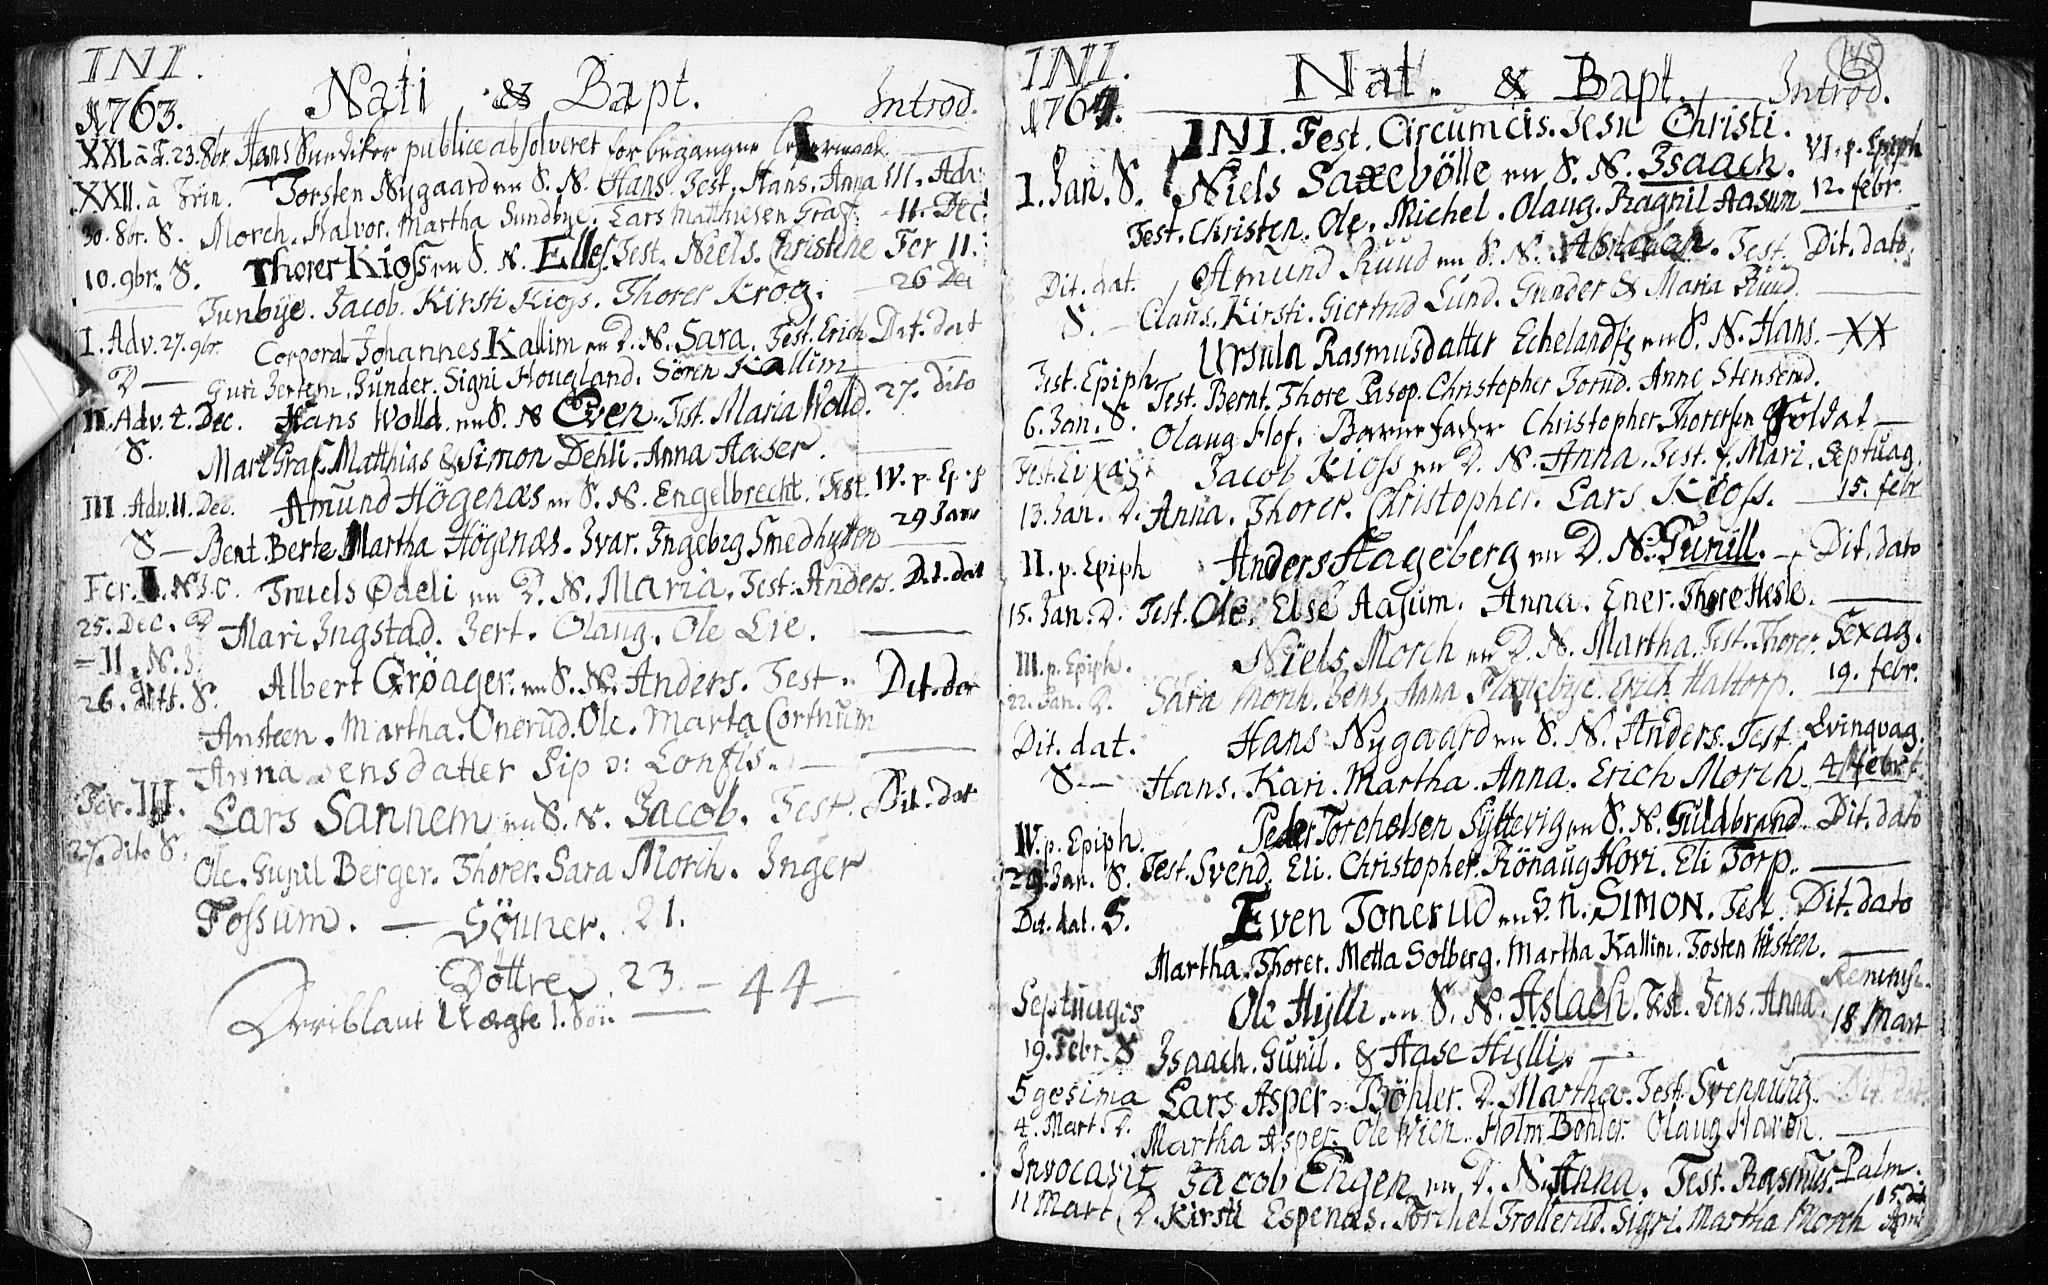 INI.
1763. Nati & Bapt. Introd.
XXI. à T. 23. 8br. Hans Sundiker publice absolveret for begangne
XXII. à Trin. Torsten Nygaard en S. N. Hans. Test. Hans. Anna III. Adv.
30. 8br. S. Morch. Halvor. Martha Sundbye. Lars Matthiesen Graf. 11. Dec.
10. 9br. S. Thorer Kioss en S. N. Ellef. Test. Niels. Christene Fer II.
Tunbye. Jacob. Kirsti Kioss. Thorer Krog. 26 Dec
I. Adv. 27. 9br. Corporal Johannes Kallim en D. N. Sara. Test. Erich Dit. dat
D — Guri Sunder. Signi Hougland. Sören Kallim
II. Adv. 4. Dec. Hans Wolld en S. N Even. Test. Maria Wolld. 27. dito
S. Mari Graf. Matthias & Simon Dehli. Anna Haser.
III. Adv. 11. Dec. Amund Högenæs en S. N. Engelbrecht. Test. IV. p. Ep.
S — Bent. Berte Martha Högenæs. Ivar. Ingebrg Smedhytten 29 Jan
Fer. I. N. J. C. Truels Ødeli en D. N. Maria. Test. Anders. Dit. dat
25. Dec. D Mari Ingstad. Olaug. Ole Lie.
— II. N. J. Albert Gröager en S. N. Anders. Test. Dit. dat
26. S.
Ansteen. Martha. Onerud. Ole. Marta Cortnum
Anna Jensdatter Sip ɔ: Lonfis.
Fer. III. Lars Sannem en S. N. Jacob. Test. Dit. dat
27. dito S. Ole. Gunil Berger. Thorer. Sara Morch. Inger
Fossum. — Sönner. 21.
Döttre 23. — 44 —
Uægte 1. Sön.
INI. 145
1764. Nat. & Bapt. Introd.
INI. Fest. Circumcis. Jesu Christi.
I. Jan. S. Niels Saxebölle en S. N. Isaach. VI. p. Epiph
Test. Christen. Ole. Michel. Olaug. Ragnil Aasum 12. febr.
Dit. dat. Amund Ruud en S. N. Aslach. Test. Dit. dato.
S. — Claus. Kirsti. Giertrud Lund. Gunder & Maria Ruud.
Ursula Rasmusdatter Echeland en S. N. Hans. — XX
Fest. Epiph. Test. Bernt. Thore Pasop. Christopher Torud. Anne Stensend.
6. Jan. S. Olaug Hof. Barne fader Christopher Thoresen Soldat —
Jacob Kioss en D. N. Anna. Test. J. Mari. Septuag.
13. Jan. D. Anna. Thorer. Christopher. Lars Kioss. 15. febr
II. p. Epiph Anders Hageberg en D. N. Gunill. — Dit. dato
15. Jan. D. Test. Ole. Else Aasum. Anna. Ener. Thore Hesle.
III. p. Epiph. Niels Morch en D. N. Martha. Test. Thorer. Sexag.
22. Jan. D. Sara Morch. Jens. Anna Slattebye. Erich Haltorp. 19. febr.
Dit. dat. Hans Nygaard en S. N. Anders. Test. Qvinqvag.
S — Hans. Kari. Martha. Anna. Erich Morch. 4
IV. p. Epiph. Peder Torchelsen Syttevig en S. N. Guldbrand. Dit. dato
29. Jan. S. Test. Svend. Eli. Christopher. Rönaug Hovi. Eli Torp.
Dit. dat. S. Even Tonerud en S. N. SIMON. Test. Dit. dato
Martha. Thorer. Metta Solberg. Martha Kallim. Tosten Histeen.
Septuages Ole Hylli en S. N. Aslach. Test. Jens. Anna. Reminisc.
19. Febr. S Isaach. Gunil. & Aase Hylli. — 18 Mart
5gesima Lars Asper ɔ: Böhler. D. Martha. Test. Svennung. Dit. dat.
4. Mart. D. Martha Asper. Ole Wien. Holm Böhler. Olaug Haren.
Invocavit Jacob Engen en D. N. Anna. Test. Rasmus. Palm.
11 Mart D. Kirsti Espenæs. Torchel Trollerud. Sigri. Martha Morch 15. April